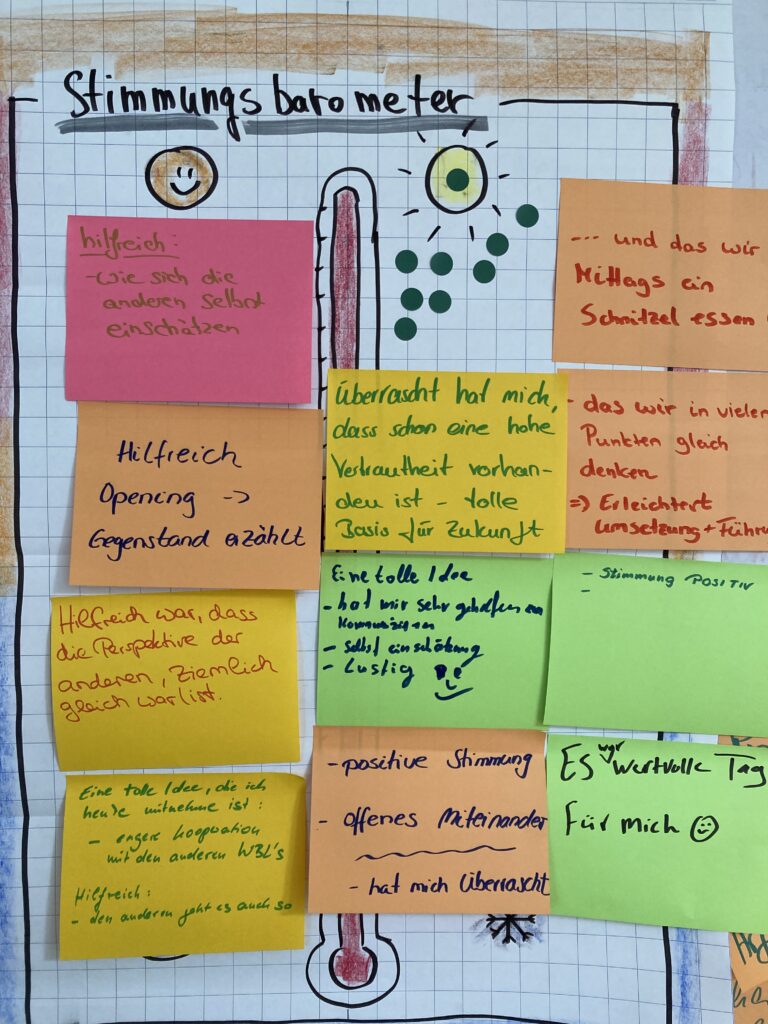 Stimmungsbarometer
hilfreich:
- wie sich die
anderen selbst
einschätzen
--- und das wir
Mittags ein
Schnitzel essen
Überrascht hat mich,
dass schon eine hohe
Vertrautheit vorhan-
den ist - tolle
Basis für Zukunft
- das wir in vielen
Punkten gleich
denken
=> Erleichtert
Umsetzung + Führu
Hilfreich
Opening ->
Gegenstand erzählt
Eine tolle Idee
- hat mir sehr geholfen
- selbst einschätzung
- Lustig
- Stimmung POSITIV
-
Hilfreich war, dass
die Perspektive der
anderen, ziemlich
gleich war/ist.
- positive Stimmung
- offenes Miteinander
- hat mich Überrascht
ES wgr wertvolle Tag
für mich
Eine tolle Idee, die ich
heute mitnehme ist:
- engere Kooperation
mit den anderen WBL's
Hilfreich:
- den anderen geht es auch so